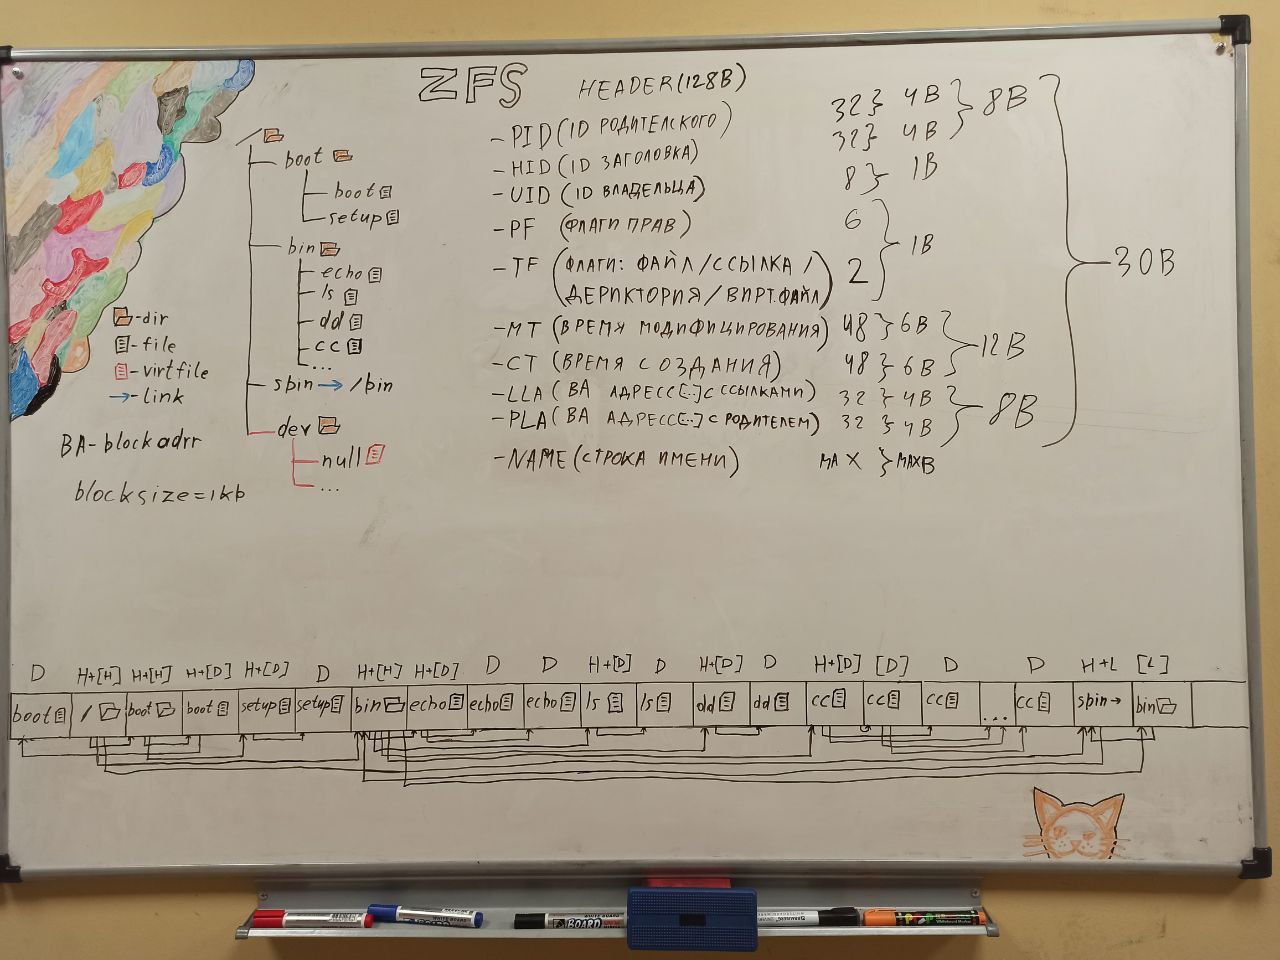 ZFS
HEADER(128B)
/
boot
boot
setup
bin
echo
ls
dd
cc
...
sbin → /bin
dev
null
...
-dir
-file
-virtfile
→-link
BA-blockadrr
blocksize=1kb
-PID(ID РОДИТЕЛСКОГО) 32} 4B
-HID(ID ЗАГОЛОВКА) 32} 4B
} 8B
-UID(ID ВЛАДЕЛЬЦА) 8} 1B
-PF (ФЛАГИ ПРАВ) 6
-TF (ФЛАГИ: ФАЙЛ/ССЫЛКА/
ДЕРИКТОРИЯ/ВИРТ.ФАЙЛ) 2
} 1B
-MT(ВРЕМЯ МОДИФИЦИРОВАНИЯ) 48} 6B
-CT(ВРЕМЯ СОЗДАНИЯ) 48} 6B
}-12B
-LLA(BA АДРЕСС[..] С ССЫЛКАМИ) 32} 4B
-PLA(BA АДРЕСС[..] С РОДИТЕЛЕМ) 32} 4B
} 8B
}-30B
-NAME(СТРОКА ИМЕНИ) MAX }MAXB
D H+[H] H+[H] H+[D] H+[D] D H+[H] H+[D] D D H+[D] D H+[D] D H+[D] [D] D D H+L [L]
boot / boot boot setup setup bin echo echo echo ls ls dd dd cc cc cc ... cc sbin→ bin
BOARD